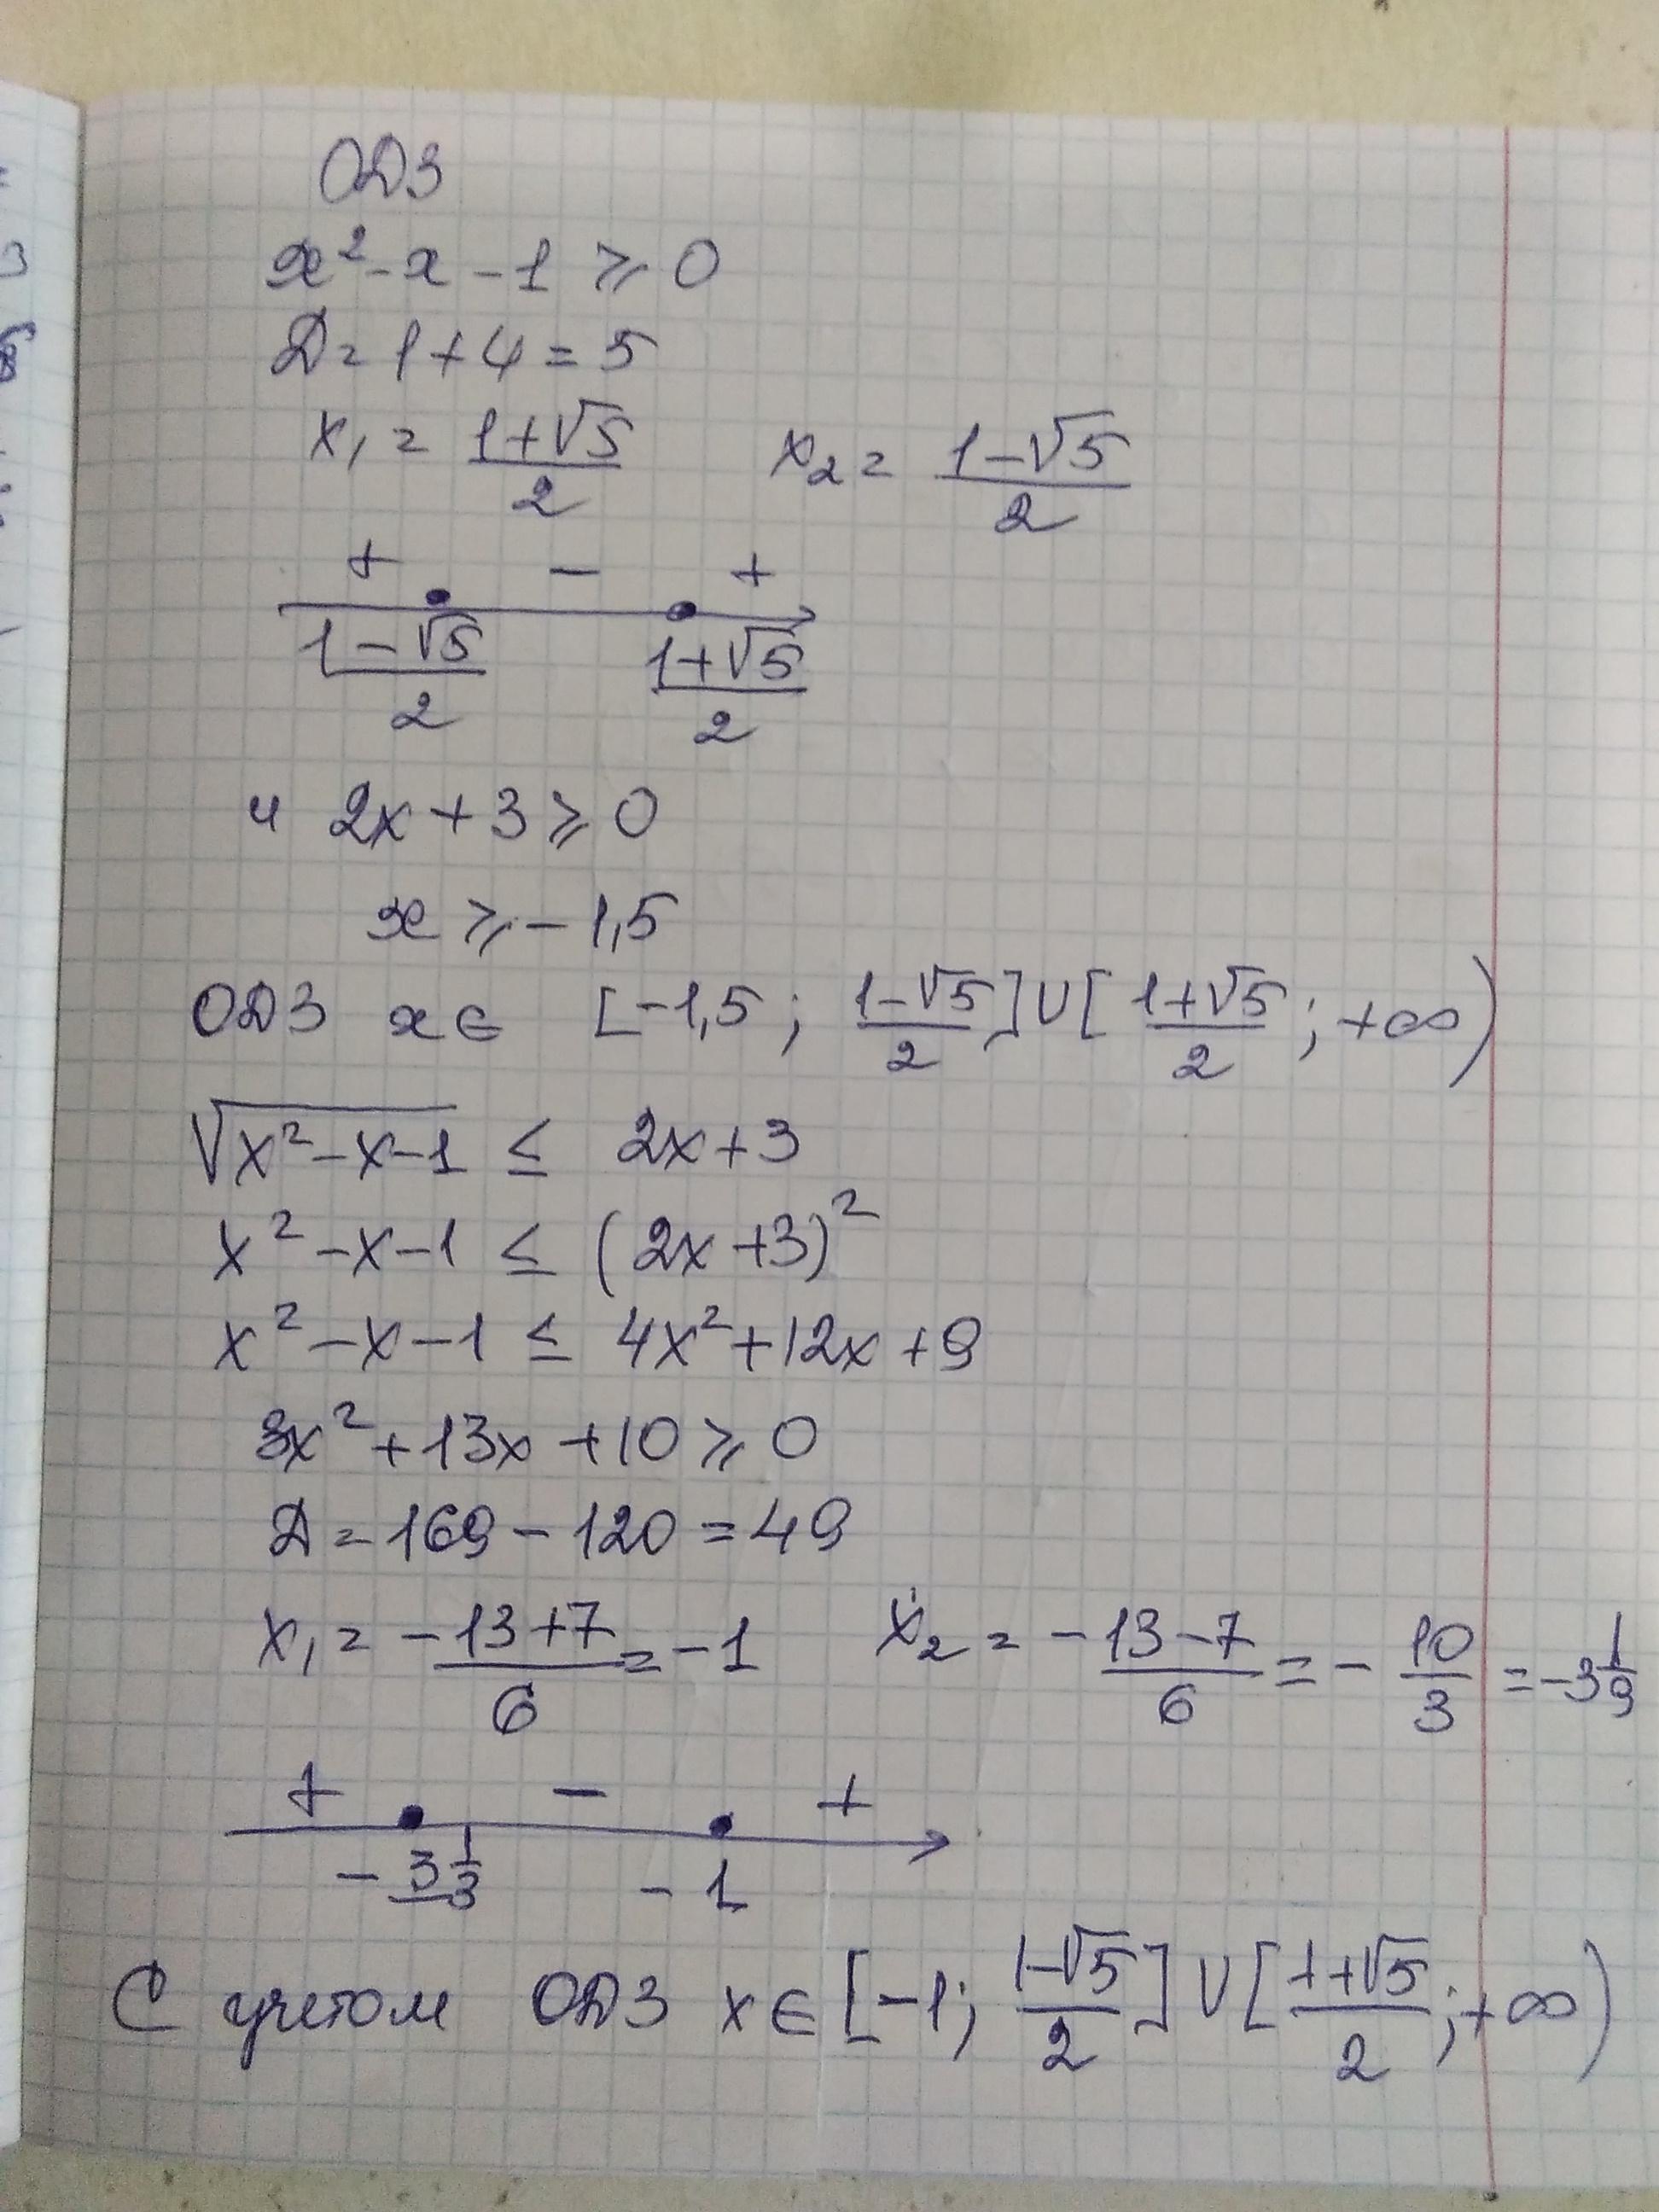 ОДЗ
x² - x - 1 ⩾ 0
Д = 1 + 4 = 5
x₁ = (1+√5)/2   x₂ = (1-√5)/2
+ − +
(1-√5)/2   (1+√5)/2
и 2x + 3 ⩾ 0
x ⩾ - 1,5
ОДЗ x ∈ [-1,5; (1-√5)/2] ∪ [(1+√5)/2; +∞)
√(x²-x-1) ≤ 2x+3
x² - x - 1 ≤ (2x+3)²
x² - x - 1 ≤ 4x² + 12x + 9
3x² + 13x + 10 ⩾ 0
Д = 169 - 120 = 49
x₁ = -(13+7)/6 = -1   x₂ = -(13-7)/6 = -10/3 = -3 1/3
+ − +
-3 1/3   -1
С учетом ОДЗ x ∈ [-1; (1-√5)/2] ∪ [(1+√5)/2; +∞)